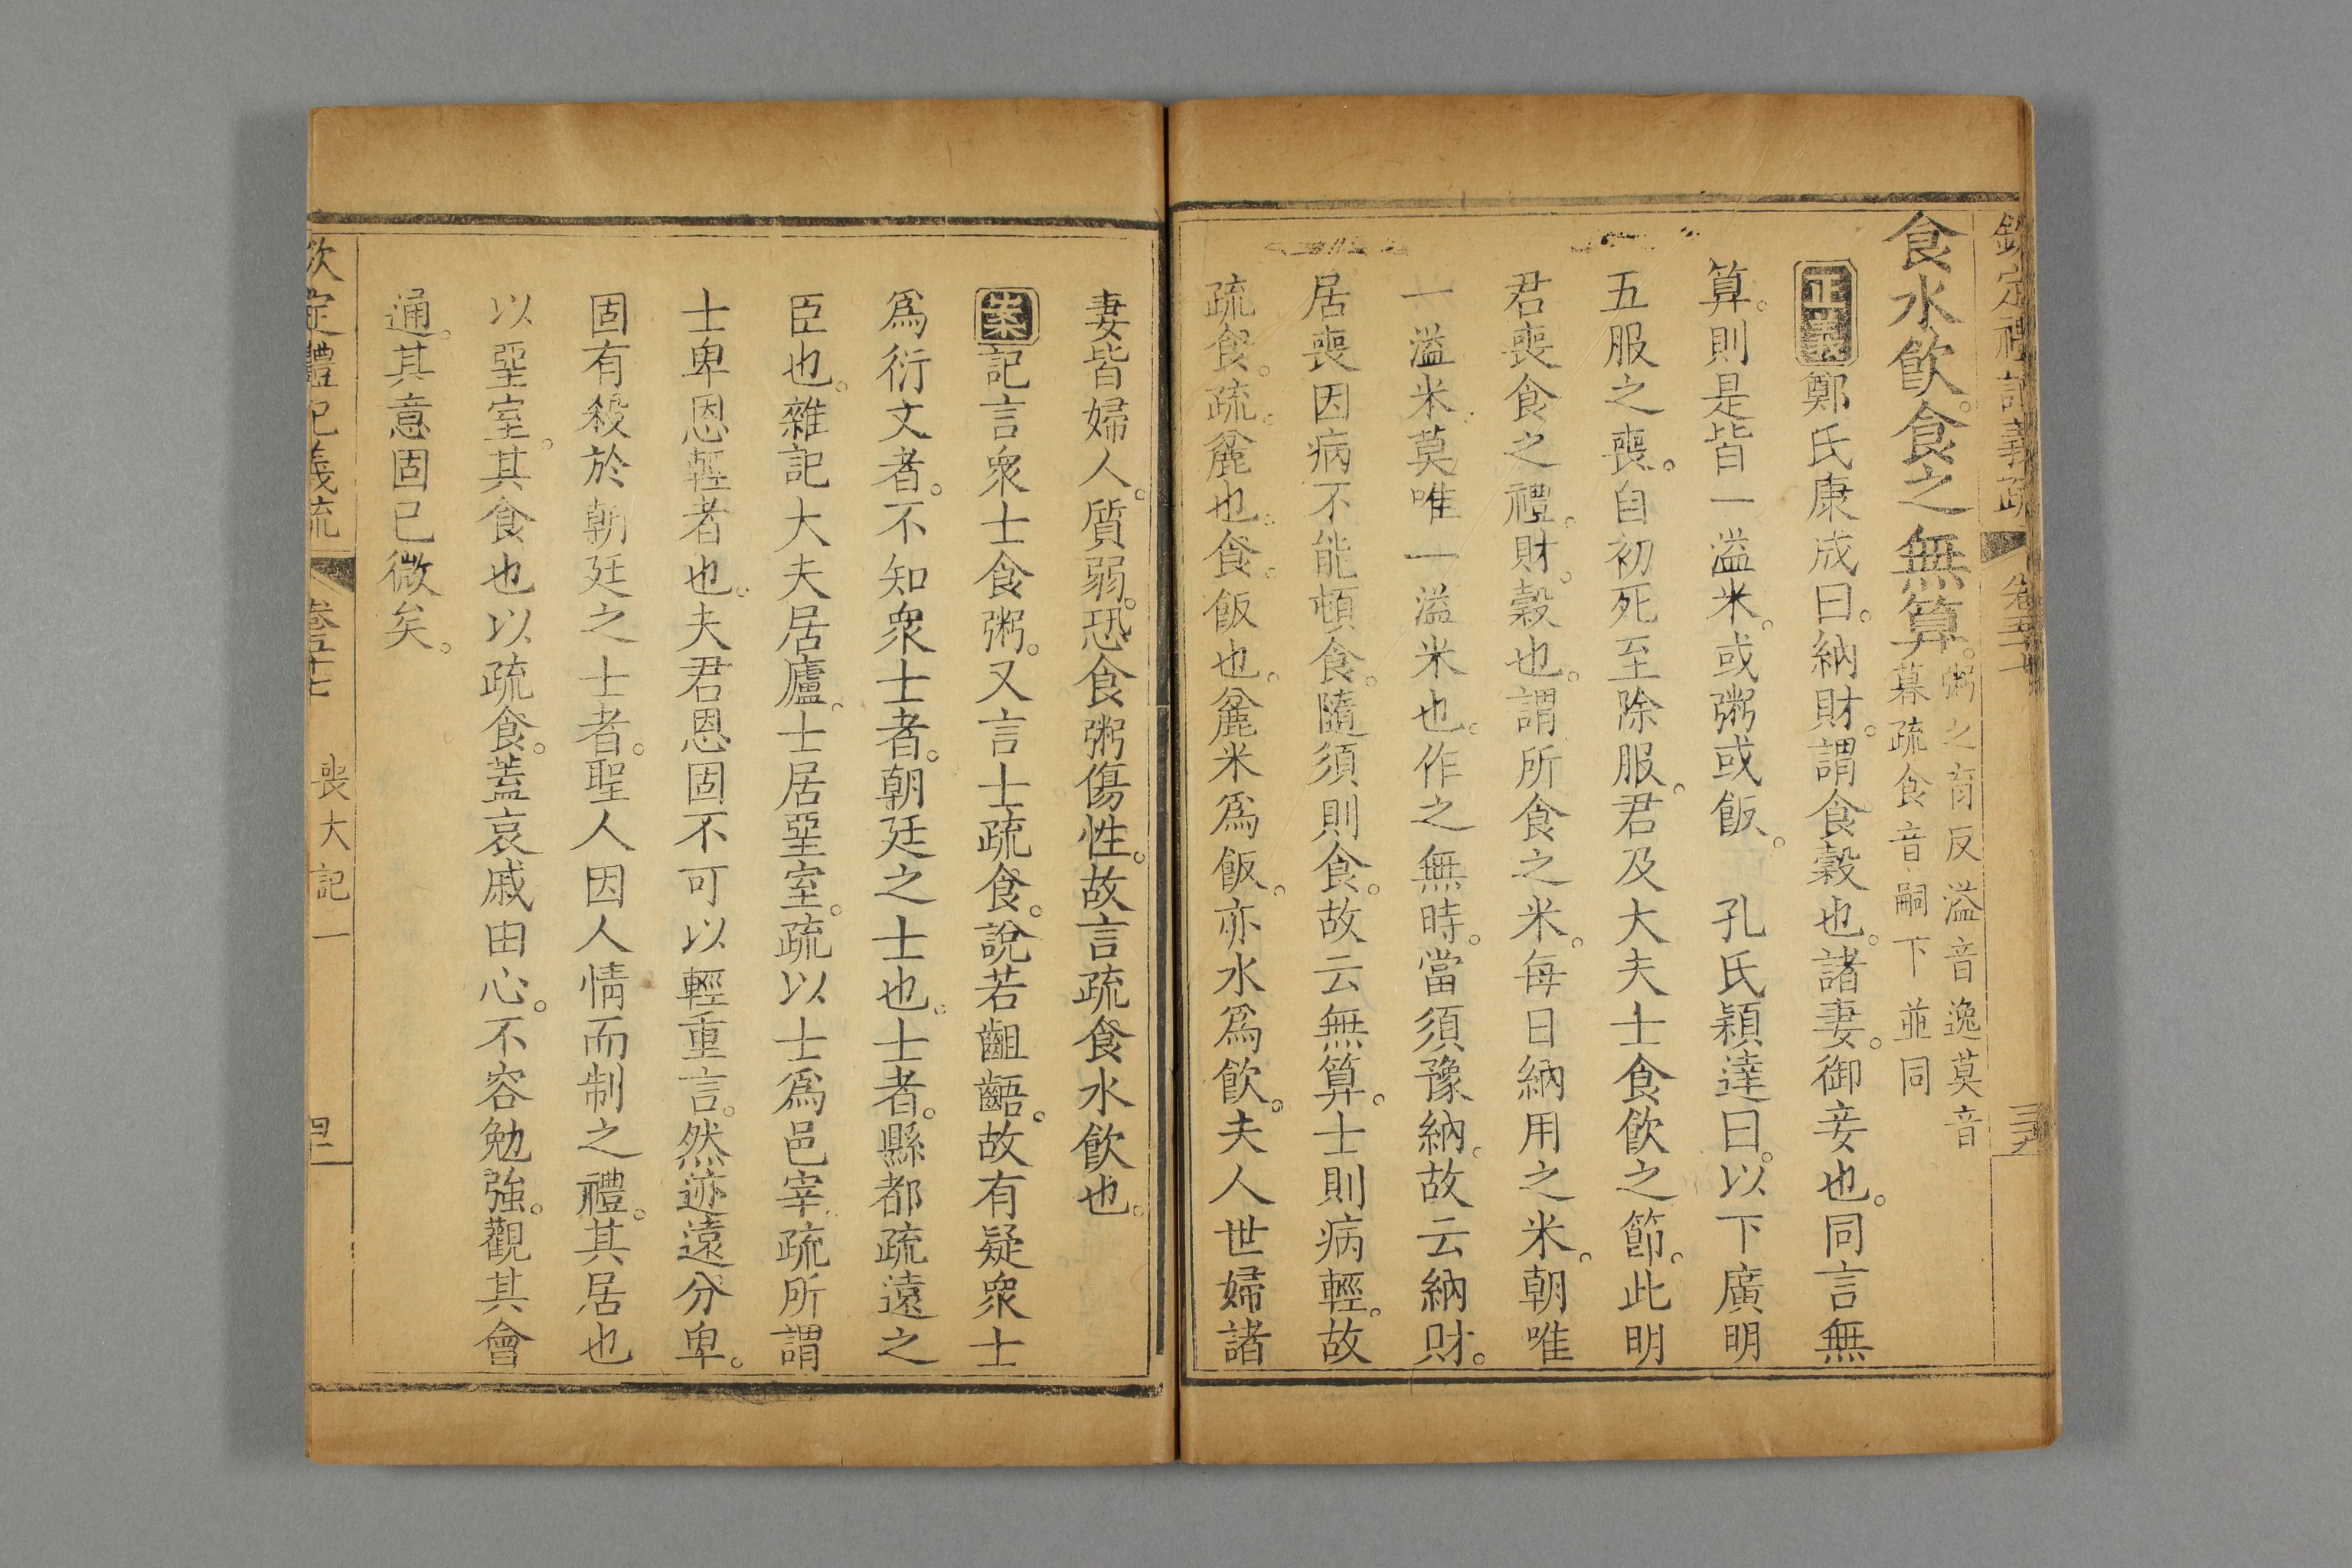 欽定禮記義疏 卷五十七 三九
食水飲。食之無算。粥之育反溢音逸莫音
暮疏食音嗣下並同
正義鄭氏康成曰。納財。謂食穀也。諸妻。御妾也。同言無
算。則是皆一溢米。或粥或飯。 孔氏穎達曰。以下廣明
五服之喪。自初死至除服。君及大夫士食飲之節。此明
君喪食之禮。財。穀也。謂所食之米。每日納用之米。朝唯
一溢米。莫唯一溢米也。作之無時。當須豫納。故云納財。
居喪因病不能頓食。隨須則食。故云無算。士則病輕。故
疏食。疏。麤也。食。飯也。麤米爲飯。亦水爲飲。夫人世婦諸
妻皆婦人。質弱。恐食粥傷性。故言疏食水飲也。
案記言衆士食粥。又言士疏食。說若齟齬。故有疑衆士
爲衍文者。不知衆士者。朝廷之士也。士者。縣都疏遠之
臣也。雜記大夫居廬。士居堊室。疏以士爲邑宰。疏所謂
士卑恩輕者也。夫君恩固不可以輕重言。然迹遠分卑。
固有殺於朝廷之士者。聖人因人情而制之禮。其居也
以堊室。其食也以疏食。蓋哀戚由心。不容勉強。觀其會
通。其意固已微矣。
欽定禮記義疏 卷五十七 喪大記一